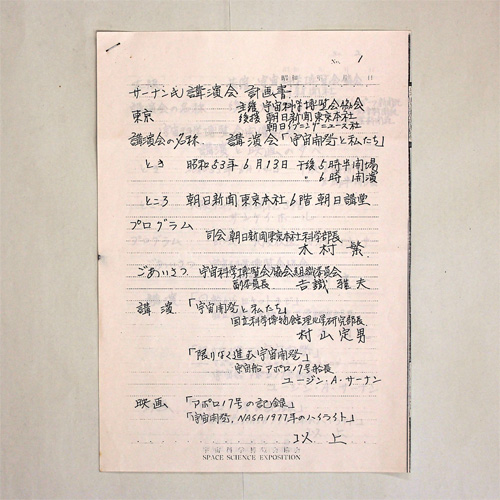 No. 1
昭和 年 月 日
サーナン氏講演会 計画書
主催 宇宙科学博覧会協会
東京 後援 朝日新聞東京本社
朝日イブニングニュース社
講演会の名称 講演会「宇宙開発と私たち」
とき 昭和53年6月13日 午後5時半開場
〃 6時 開演
ところ 朝日新聞東京本社6階 朝日講堂
プログラム
司会 朝日新聞東京本社科学部長
木村 繁
ごあいさつ 宇宙科学博覧会協会組織委員会
副委員長 吉識 雅夫
講演 「宇宙開発と私たち」
国立科学博物館理化学研究部長
村山定男
「限りなく進む宇宙開発」
宇宙船アポロ17号船長
ユージン・A・サーナン
映画 「アポロ17号の記録」
「宇宙開発,NASA1977年のハイライト」
以上
宇宙科学博覧会協会
SPACE SCIENCE EXPOSITION